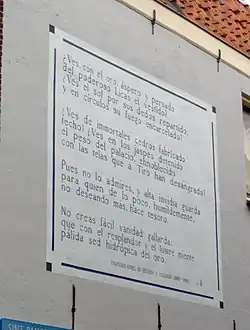 ¿Ves, con el oro, áspero y pesado
del poderoso Licas el vestido?
¿Ves el sol por sus dedos repartido,
y en círculos su fuego encarcelado?
¿Ves de inmortales cedros fabricado
techo? ¿Ves en los jaspes detenido
el peso del palacio, ennoblecido
con las telas que a Tiro han desangrado?
Pues no lo admires, y alta invidia guarda
para quien de lo poco, humildemente,
no deseando mas, hace tesoro.
No creas fácil vanidad gallarda:
que con el resplandor y el lustre miente
pálida sed hidrópica del oro.
FRANCISCO GOMEZ DE QUEVEDO Y VILLEGAS
SINT